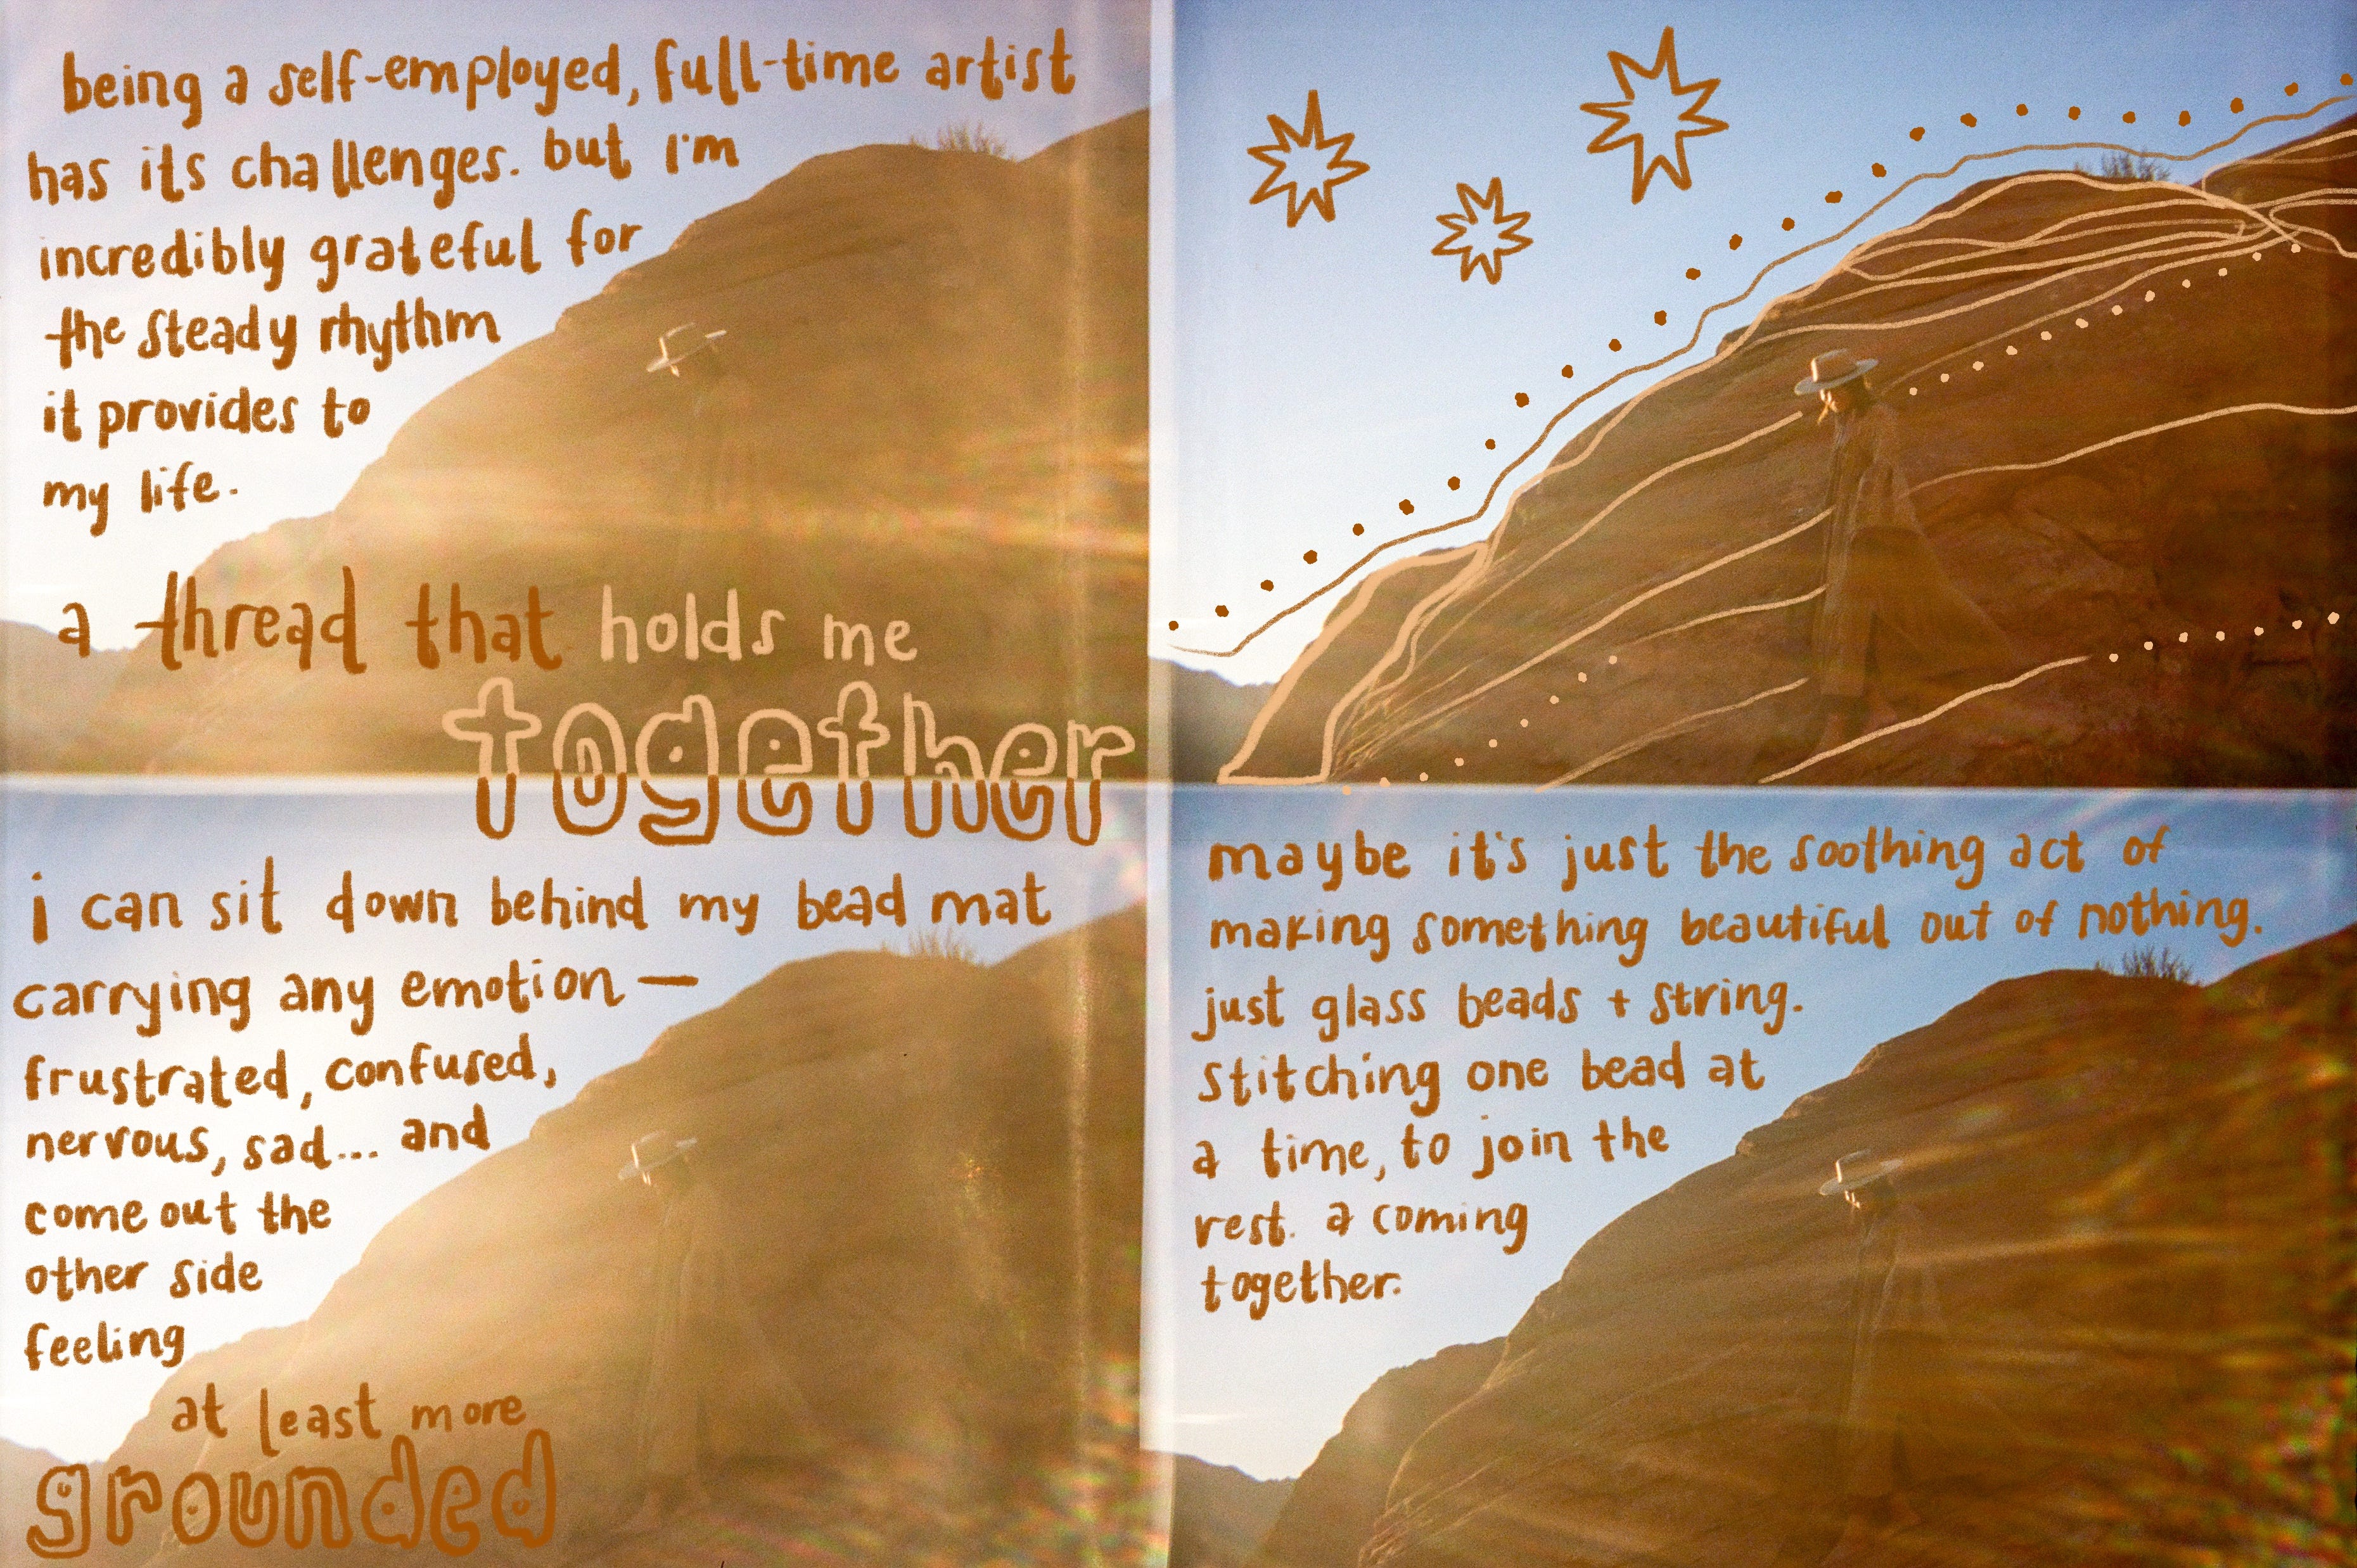 being a self-employed, full-time artist
has its challenges. but I'm
incredibly grateful for
the steady rhythm
it provides to
my life.
a thread that holds me
together
i can sit down behind my bead mat
carrying any emotion —
frustrated, confused,
nervous, sad... and
come out the
other side
feeling
at least more
grounded
maybe it's just the soothing act of
making something beautiful out of nothing.
just glass beads + string.
stitching one bead at
a time, to join the
rest. a coming
together.